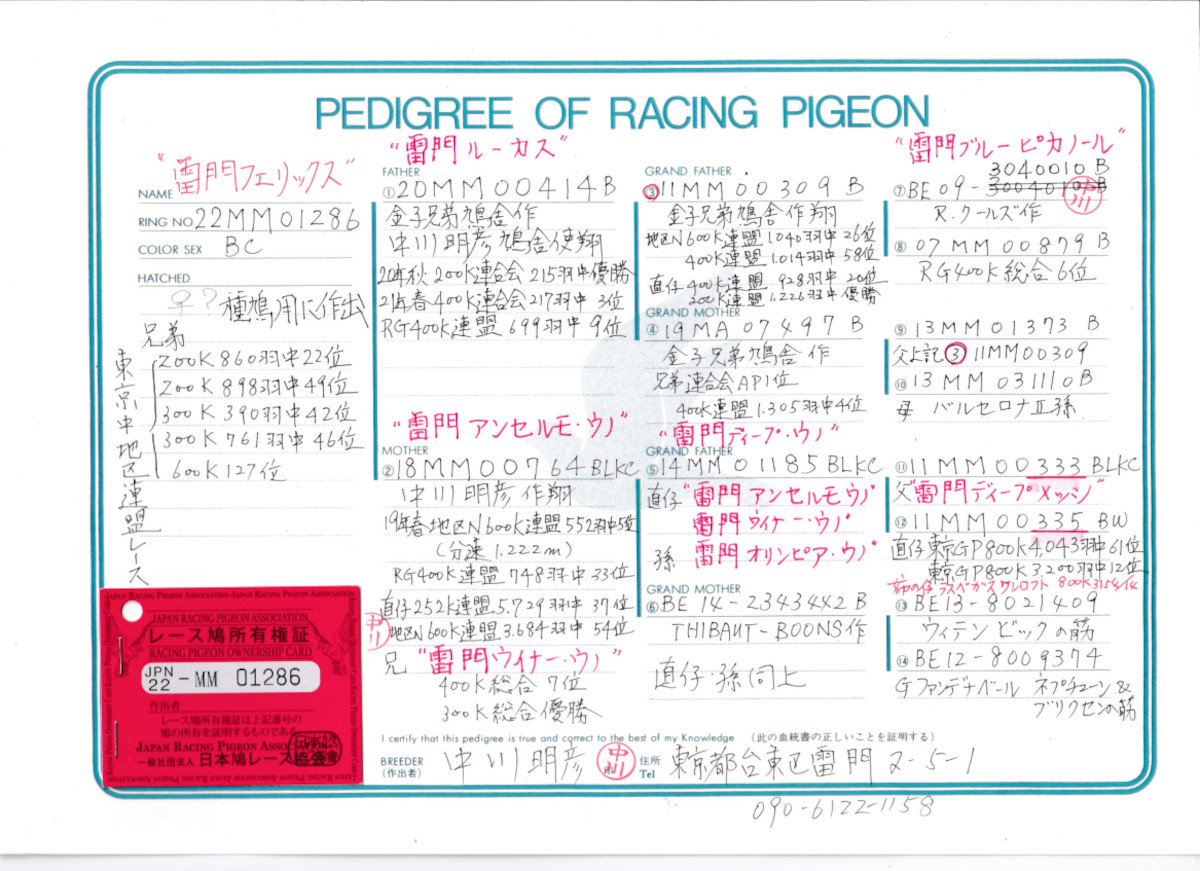 PEDIGREE OF RACING PIGEON
"雷門フェリックス"
NAME
RING NO 22MM01286
COLOR SEX BC
HATCHED
♀? 種鳩用に作出
兄弟
東京中地区連盟レース
200K 860羽中22位
200K 898羽中49位
300K 390羽中42位
300K 761羽中46位
600K 127位
"雷門ルーカス"
FATHER
①20MM00414B
金子兄弟鳩舎作
中川明彦鳩舎使翔
20年秋 200K連合会 215羽中優勝
21年春 400K連合会 217羽中 3位
RG400K連盟 699羽中 9位
"雷門 アンセルモ・ウノ"
MOTHER
②18MM00764BLKC
中川明彦 作翔
19年春地区N600K連盟552羽中5位
(分速 1.222m)
RG400K連盟 748羽中 33位
直仔252K連盟5.729羽中 37位
中川
地区N600K連盟3.684羽中 54位
兄 "雷門ウイナー・ウノ"
400K総合 7位
300K総合優勝
GRAND FATHER
③11MM00309 B
金子兄弟鳩舎作翔
地区N600K連盟 1.040羽中26位
400K連盟 1.014羽中 58位
直仔 400K連盟 928羽中 20位
200K連盟 1.226羽中 優勝
GRAND MOTHER
④19MA07497 B
金子兄弟鳩舎 作
兄弟連合会AP1位
400K連盟 1.305羽中4位
"雷門ディープ・ウノ"
GRAND FATHER
⑤14MM01185BLKC
直仔 "雷門 アンセルモ ウノ"
雷門 ウイナー・ウノ"
孫 雷門 オリンピア・ウノ"
GRAND MOTHER
⑥BE 14-2343442 B
THIBAUT-BOONS作
直仔・孫 同上
"雷門ブルー ピカノール"
3040010 B
⑦BE 09-3004010B
中川
R.クールズ作
⑧07MM00879 B
RG400K総合 6位
⑨13MM01373 B
父上記③11MM00309
⑩13MM03110B
母 バルセロナⅡ孫
⑪11MM00333BLKC
父"雷門ディープメッシ"
⑫11MM00335 BW
直仔東京GP800K4,043羽中61位
東京GP800K3,200羽中12位
ラスベガスワンロフト 800K
⑬BE13-8021409
ウィテン ビックの筋
⑭BE12-8009374
Gファンデナベール ネプチューン&
ブリクセンの筋
I certify that this pedigree is true and correct to the best of my Knowledge (此の血統書の正しいことを証明する)
BREEDER
(作出者)
中川明彦
中川
住所
Tel
東京都台東区雷門2-5-1
090-6122-1158
JAPAN RACING PIGEON ASSOCIATION
レース鳩所有権証
RACING PIGEON OWNERSHIP CARD
JPN
22 -MM 01286
作出者
レース鳩所有権証は上記番号の
鳩の所有を証明するものである
JAPAN RACING PIGEON ASSOCIATION
一般社団法人 日本鳩レース協会